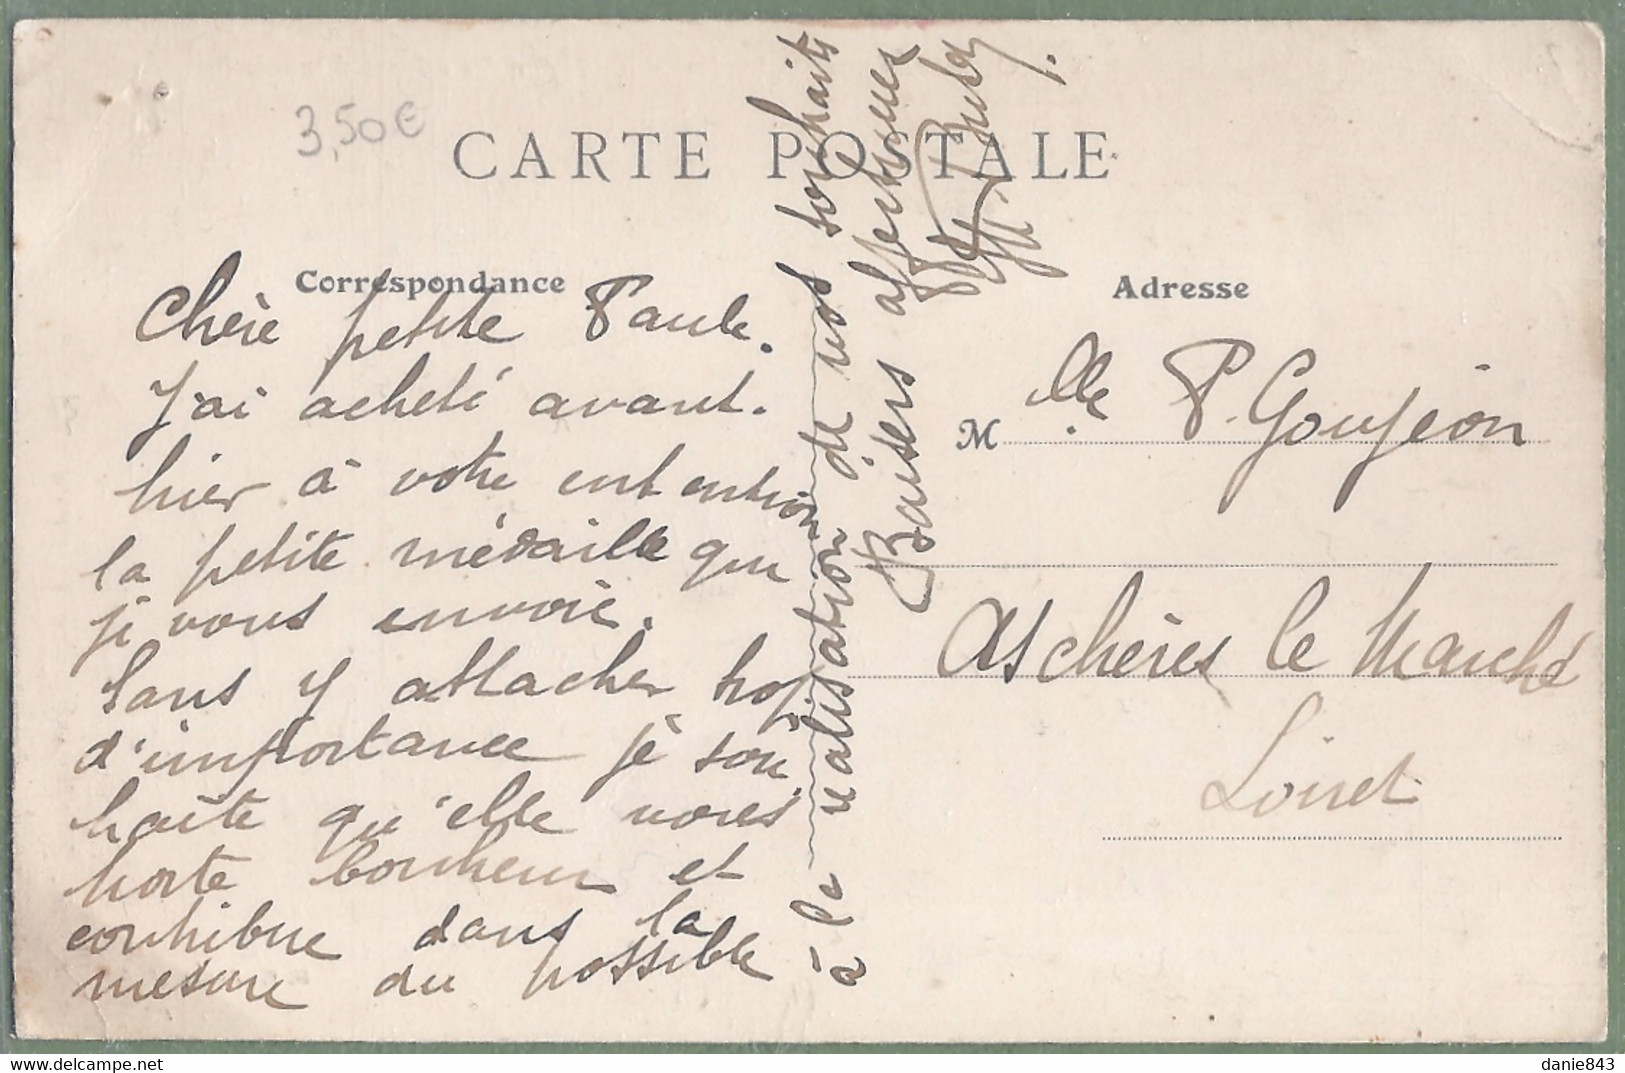 3,50€
CARTE POSTALE
Correspondance
Chère petite Paule.
J'ai acheté avant.
hier à votre intention
la petite médaille que
je vous envoie.
Sans y attacher trop
d'importance je sou
haite qu'elle vous
porte bonheur et
contribue dans la
mesure du possible
à la réalisation de vos souhaits
Baisers affectueux
Adresse
M lle P. Goujeon
Aschères le Marché
Loiret
danie843